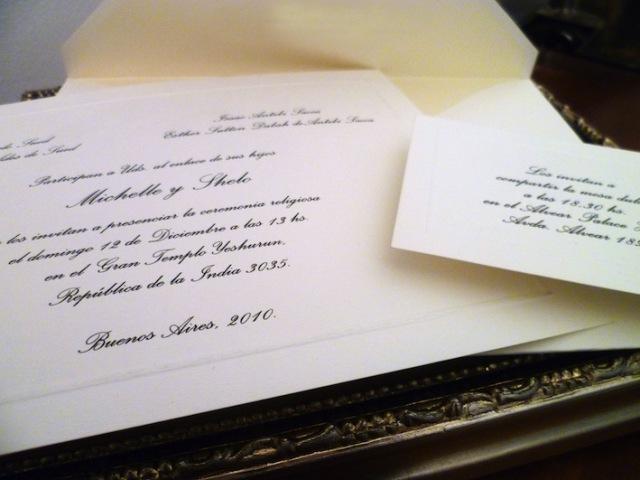 de Saud
Isaac Antebi Sacca
Esther Sutton Dabah de Antebi Sacca
Participan a Uds. al enlace de sus hijos
Michelle y Shelo
los invitan a presenciar la ceremonia religiosa
el domingo 12 de Diciembre a las 13 hs.
en el Gran Templo Yeshurun,
República de la India 3035.
Buenos Aires, 2010.
Los invitan a
compartir la mesa dul
a las 18:30 hs.
en el Alvear Palace
Avda. Alvear 18